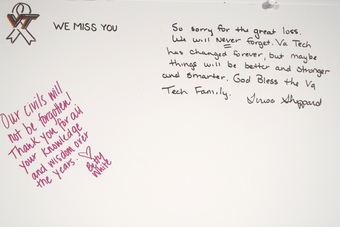 VT
WE MISS YOU
So sorry for the great loss.
We will Never forget. Va Tech
has changed forever, but maybe
things will be better and stronger
and smarter. God Bless the Va
Tech Family.
Sheppard
Our Civils will
not be forgotten!
Thank you for all
your knowledge
and wisdom over
the years.
Betty
White